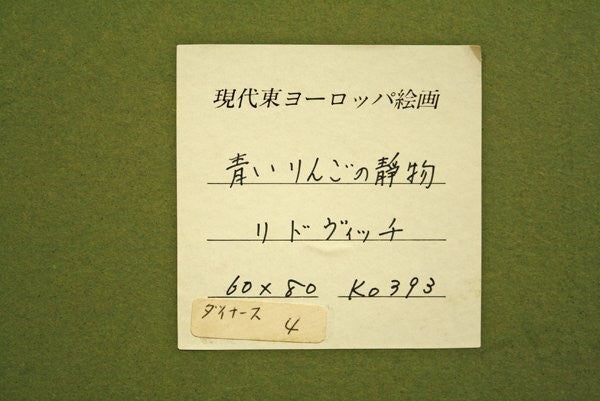 現代東ヨーロッパ絵画
青いりんごの静物
リドヴィッチ
60×80 Ko393
ダイナース
4